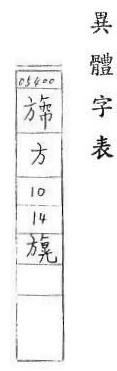 異體字表
05400
方
10
14